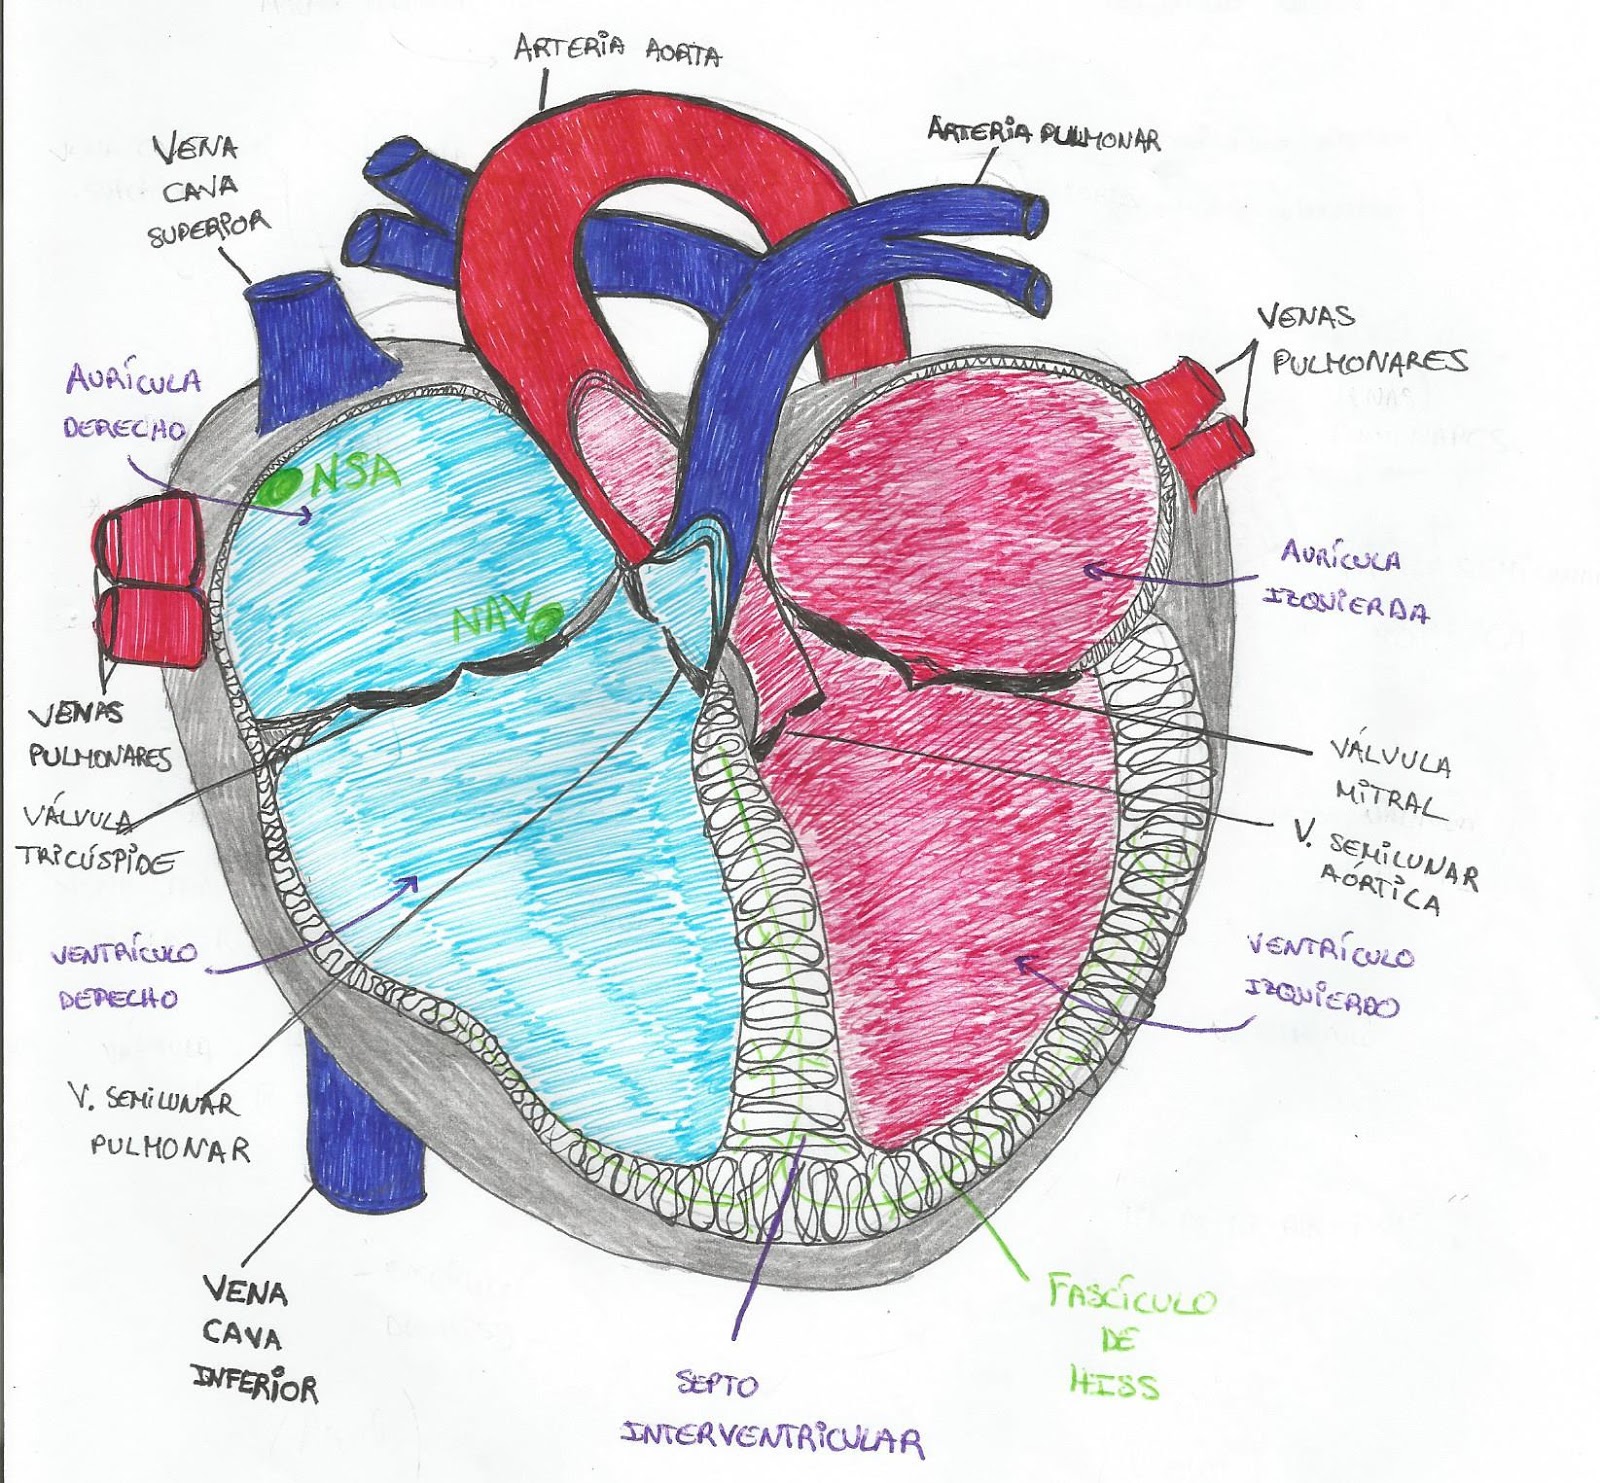 ARTERIA AORTA
ARTERIA PULMONAR
VENA
CAVA
SUPERIOR
VENAS
PULMONARES
AURÍCULA
DERECHO
NSA
AURÍCULA
IZQUIERDA
NAV
VENAS
PULMONARES
VÁLVULA
TRICÚSPIDE
VÁLVULA
MITRAL
V. SEMILUNAR
AÓRTICA
VENTRÍCULO
DERECHO
VENTRÍCULO
IZQUIERDO
V. SEMILUNAR
PULMONAR
VENA
CAVA
INFERIOR
FASCÍCULO
DE
HISS
SEPTO
INTERVENTRICULAR